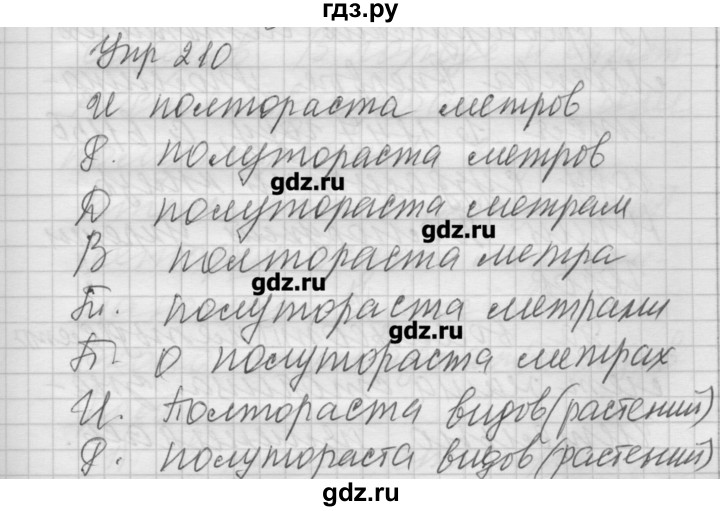 гдз.ру
Упр 210
И полтораста метров
Р. полутораста метров
gdz.ru
Д полутораста метрам
gdz.ru
В полтораста метра
gdz.ru
Тп. полутораста метрами
gdz.ru
П о полутораста метрах
И. Полтораста видов (растений)
Р. полутораста видов (растений)
gdz.ru